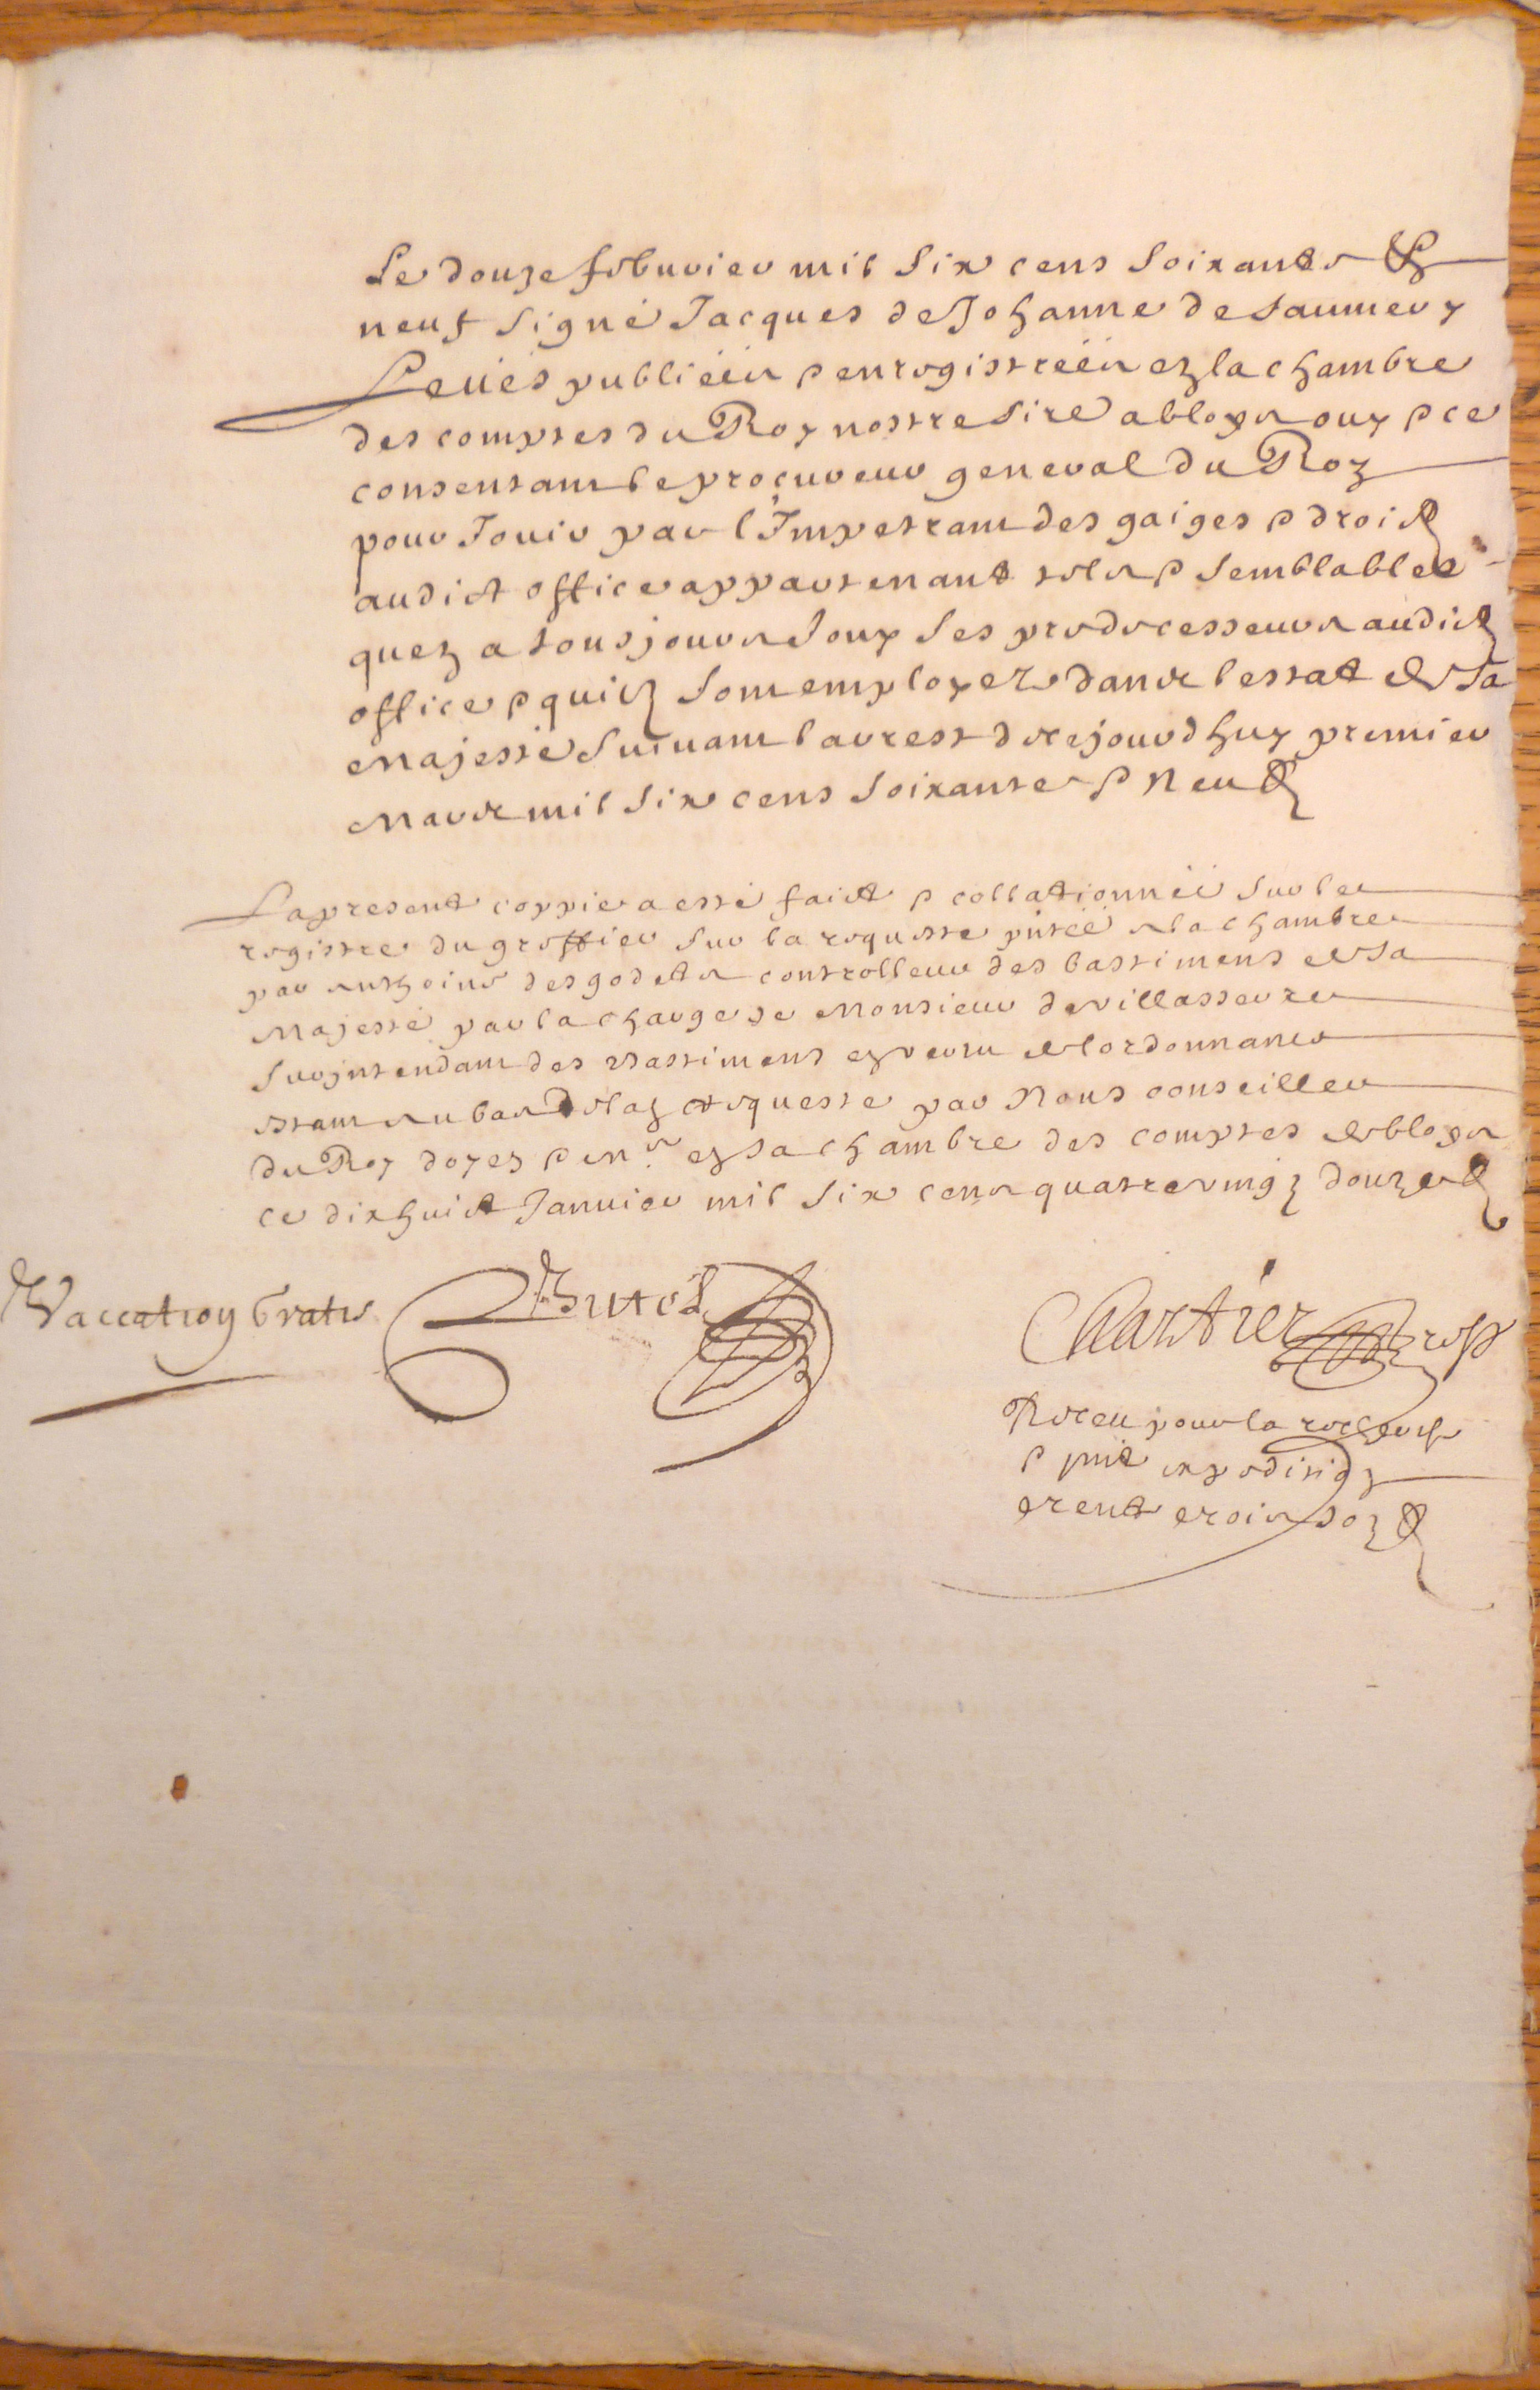 Le douze febvrier mil six cens soixante &
neuf signé Jacques de Johanne de Saumery
Leües publiéés & enregistréés en la chambre
des comptes du Roy nostre sire a bloys ouy & ce
consentant le procureur general du Roy
pour Jouir par l'Impetrant des gaiges & droictz
audict office appartenant telz & semblables
quen a tousjours Jouy ses predecesseurs audict
office & quilz sont employez dans lestat de sa
Majesté suivant larrest de cejourdhuy premier
Mars mil six cens soixante & neuf
La present coppie a esté faict & collationnéé sur le
registre du greffier sur la requeste pntéé a la chambre
par Anthoine desgodetz controlleur des bastimens de sa
Majesté par la charge de Monsieur de villasserre
surintendant des Bastimens en vertu de lordonnance
estant au bas de lad requeste par Nous conseiller
du Roy doyen & mr en sa chambre des comptes de bloys
ce dixhuict Janvier mil six cens quatrevingz douze
Vaccation Gratis
Chartier
Receu pour la
& pnt expedition
trente trois solz